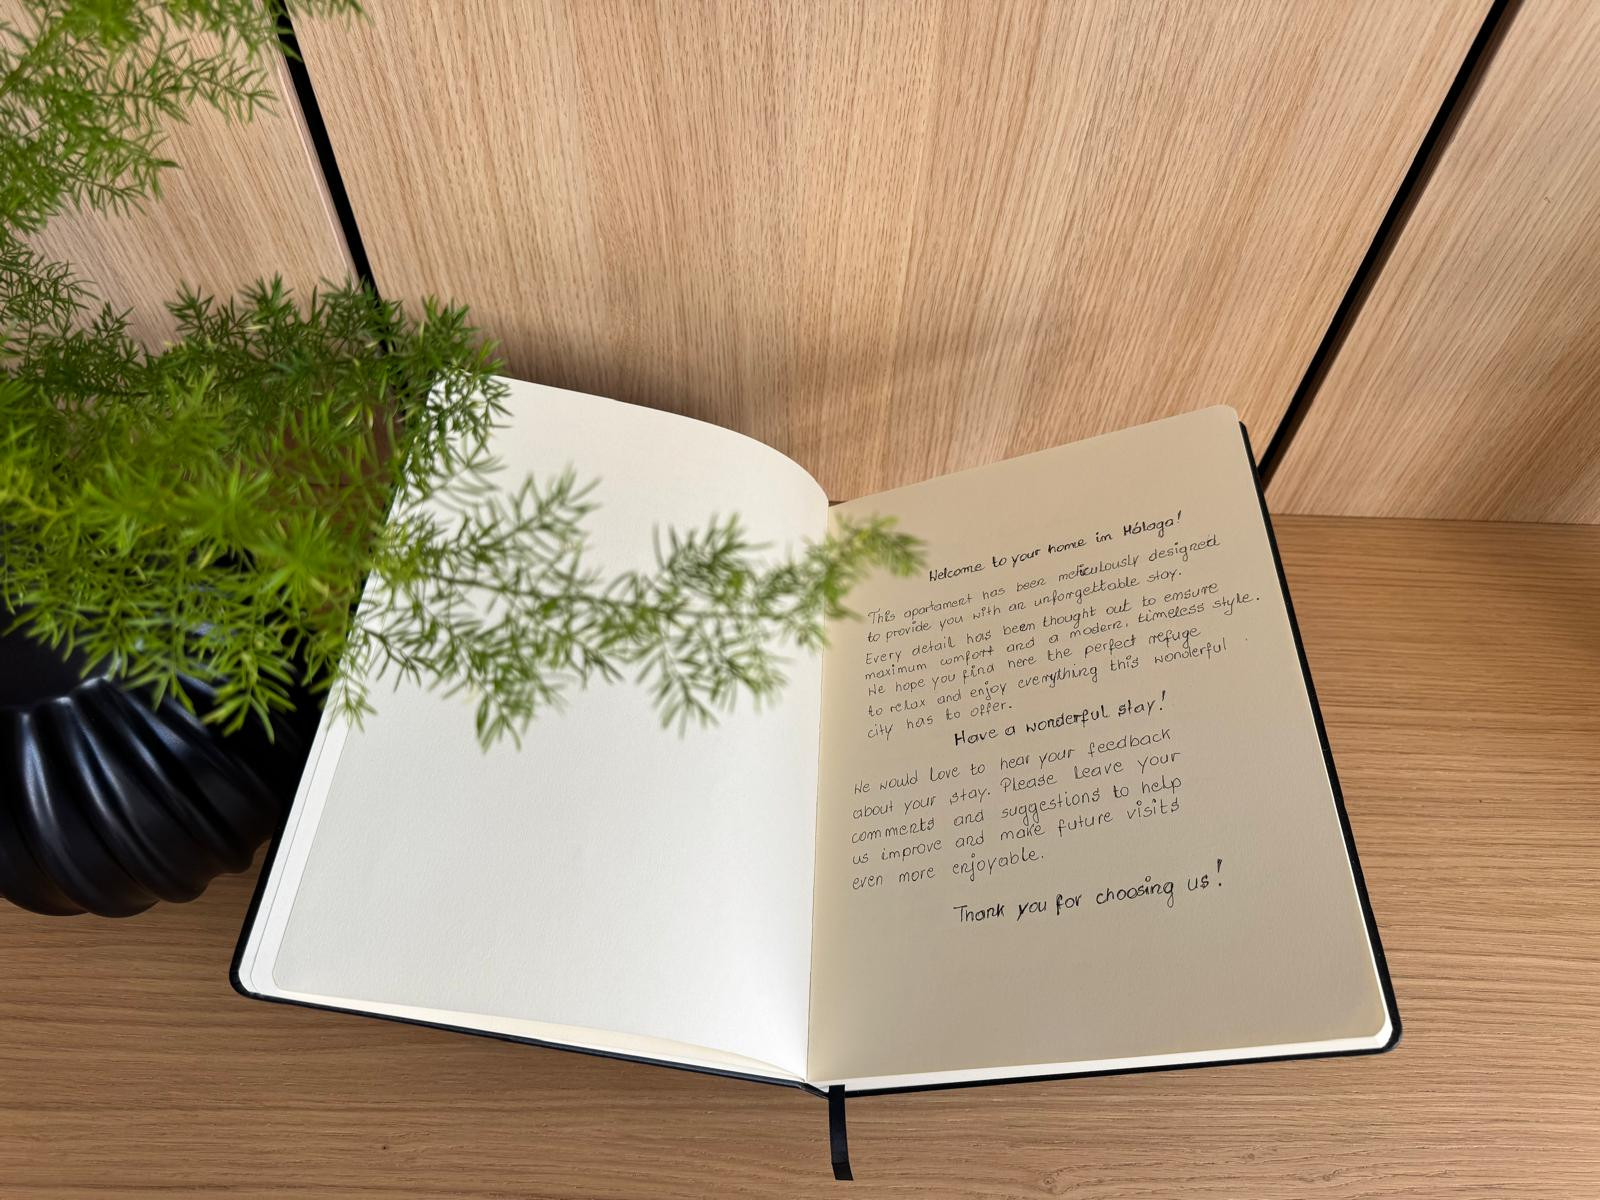 Welcome to your home in Málaga!
This apartament has been meticulously designed
to provide you with an unforgettable stay.
Every detail has been thought out to ensure
maximum comfort and a modern, timeless style.
We hope you find here the perfect refuge
to relax and enjoy everything this wonderful
city has to offer.
Have a wonderful stay!
We would love to hear your feedback
about your stay. Please leave your
comments and suggestions to help
us improve and make future visits
even more enjoyable.
Thank you for choosing us!